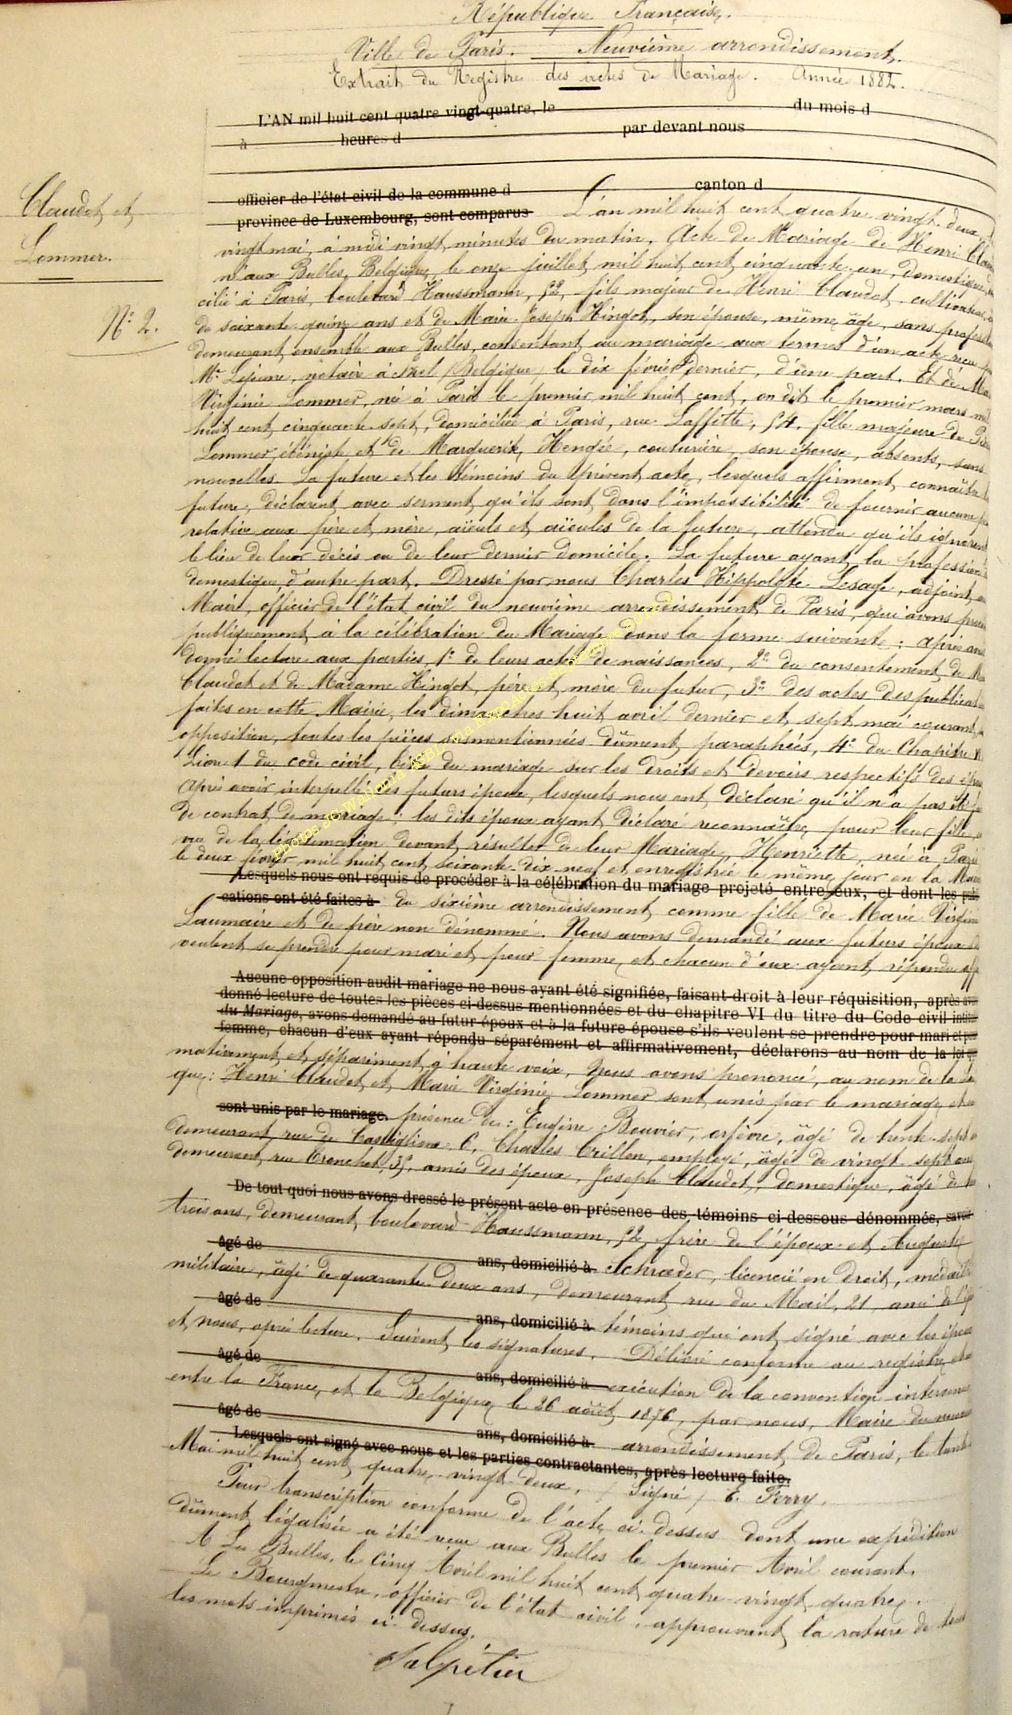 République Française.
Ville de Paris. Neuvième arrondissement.
Extrait du Registre des actes de Mariage. Année 1882.
L'AN mil huit cent quatre vingt-quatre, le du mois d
à heures d par devant nous
officier de l'état civil de la commune d canton d
province de Luxembourg, sont comparus L'an mil huit cent quatre vingt-deux,
Claudot et
Lommer.
N° 2.
vingt mai, à midi vingt minutes du matin. Acte de Mariage de Henri
né aux Bulles, Belgique, le onze juillet mil huit cent cinquante-un, domestique,
cilié à Paris, boulevard Haussmann, 92, fils majeur de Henri Claudot, cultivateur,
de soixante-quinze ans et de Marie-Joseph Hingot, son épouse, même âge, sans
demeurant ensemble aux Bulles, consentant au mariage aux termes d'un acte reçu
Me Lejeune, notaire à Izel (Belgique) le dix février dernier, d'une part. Et de
Virginie Lommer, né à Paris le premier mil huit cent, on dit le premier mars
huit cent cinquante sept, domiciliée à Paris, rue Laffitte, 54, fille majeure de
Lommer, ébéniste et de Marguerite Hengée, couturière, son épouse, absents, sans
nouvelles. La future et les témoins du présent acte, lesquels affirment connaître
future, déclarent avec serment qu'ils sont dans l'impossibilité de fournir aucun
relative aux père et mère, aïeuls et aïeules de la future, attendu qu'ils ignorent
le lieu de leur décès ou de leur dernier domicile. La future ayant la profession
domestique d'autre part. Dressé par nous Charles Hippolyte Lesage, adjoint
Maire, officier de l'état civil du neuvième arrondissement de Paris, qui avons
publiquement à la célébration du Mariage dans la forme suivante: après
donné lecture aux parties, 1° de leurs actes de naissances, 2° du consentement de
Claudot et de Madame Hingot, père et mère du futur, 3° des actes des
faites en cette Mairie, les dimanches huit avril dernier et sept mai courant,
opposition, toutes les pièces susmentionnées dûment paraphées, 4° du Chapitre
Livre 1 du code civil, titre du mariage sur les droits et devoirs respectifs des
Après avoir interpellé les futurs époux, lesquels nous ont déclaré qu'il n'a pas été
de contrat de mariage; les dits époux ayant déclaré reconnaître pour leur fille
vue de la légitimation devant résulter de leur Mariage, Henriette, née à Paris
le deux février mil huit cent soixante-dix-neuf et enregistrée le même jour en la
Lesquels nous ont requis de procéder à la célébration du mariage projeté entre eux, et dont les
cations ont été faites à du sixième arrondissement comme fille de Marie
Laumaire et de père non dénommé. Nous avons demandé aux futurs époux
veulent se prendre pour mari et pour femme, et chacun d'eux ayant répondu
Aucune opposition audit mariage ne nous ayant été signifiée, faisant droit à leur réquisition, après
donné lecture de toutes les pièces ci-dessus mentionnées et du chapitre VI du titre du Code civil
du Mariage, avons demandé au futur époux et à la future épouse s'ils veulent se prendre pour mari et
femme, chacun d'eux ayant répondu séparément et affirmativement, déclarons au nom de la
mativement et séparément à haute voix, Nous avons prononcé, au nom de la
que: Henri Claudot et Marie Virginie Lommer sont unis par le mariage,
sont unis par le mariage. présence de: Eugène Bouvier, orfèvre, âgé de trente-sept
demeurant rue de Castiglione 6, Charles Crillon, employé, âgé de vingt-sept ans
demeurant rue Tronchet, amis des époux, Joseph Claudot, domestique, âgé de
De tout quoi nous avons dressé le présent acte en présence des témoins ci-dessous dénommés, savoir
trois ans, demeurant boulevard Haussmann, 92, frère de l'époux et Auguste
âgé de ans, domicilié à Schrœder, licencié en droit,
militaire, âgé de quarante-deux ans, demeurant rue du Mail, 21, ami
âgé de ans, domicilié à témoins qui ont signé avec les époux
et nous, après lecture. Suivent les signatures. Délivré conforme au registre
âgé de ans, domicilié à exécution de la convention
entre la France et la Belgique le 26 août 1876, par nous, Maire du
âgé de ans, domicilié à arrondissement de Paris, le
Lesquels ont signé avec nous et les parties contractantes, après lecture faite.
Mai mil huit cent quatre-vingt-deux. (Signé) E. Ferry.
Pour transcription conforme de l'acte ci-dessus dont une expédition
dûment légalisée a été reçue aux Bulles le premier Avril courant.
A Les Bulles, le Cinq Avril mil huit cent quatre-vingt quatre.
Le Bourgmestre, officier de l'état civil, approuvant la rature de
les mots imprimés ci-dessus.
Salpétier